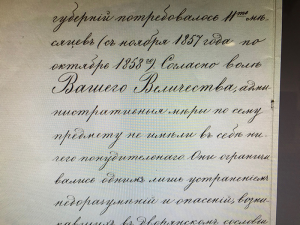 губерній потребовалось 11ть мѣ-
сяцевъ (съ ноября 1857 года по
октябрь 1858 го) Согласно волѣ
Вашего Величества, адми-
нистративныя мѣры по сему
предмету не имѣли въ себѣ ни-
чего понудительнаго Они ограничи-
вались однимъ лишь устраненіемъ
недоразумѣній и опасеній, возни-
кавшихъ въ Дворянскомъ сословіи